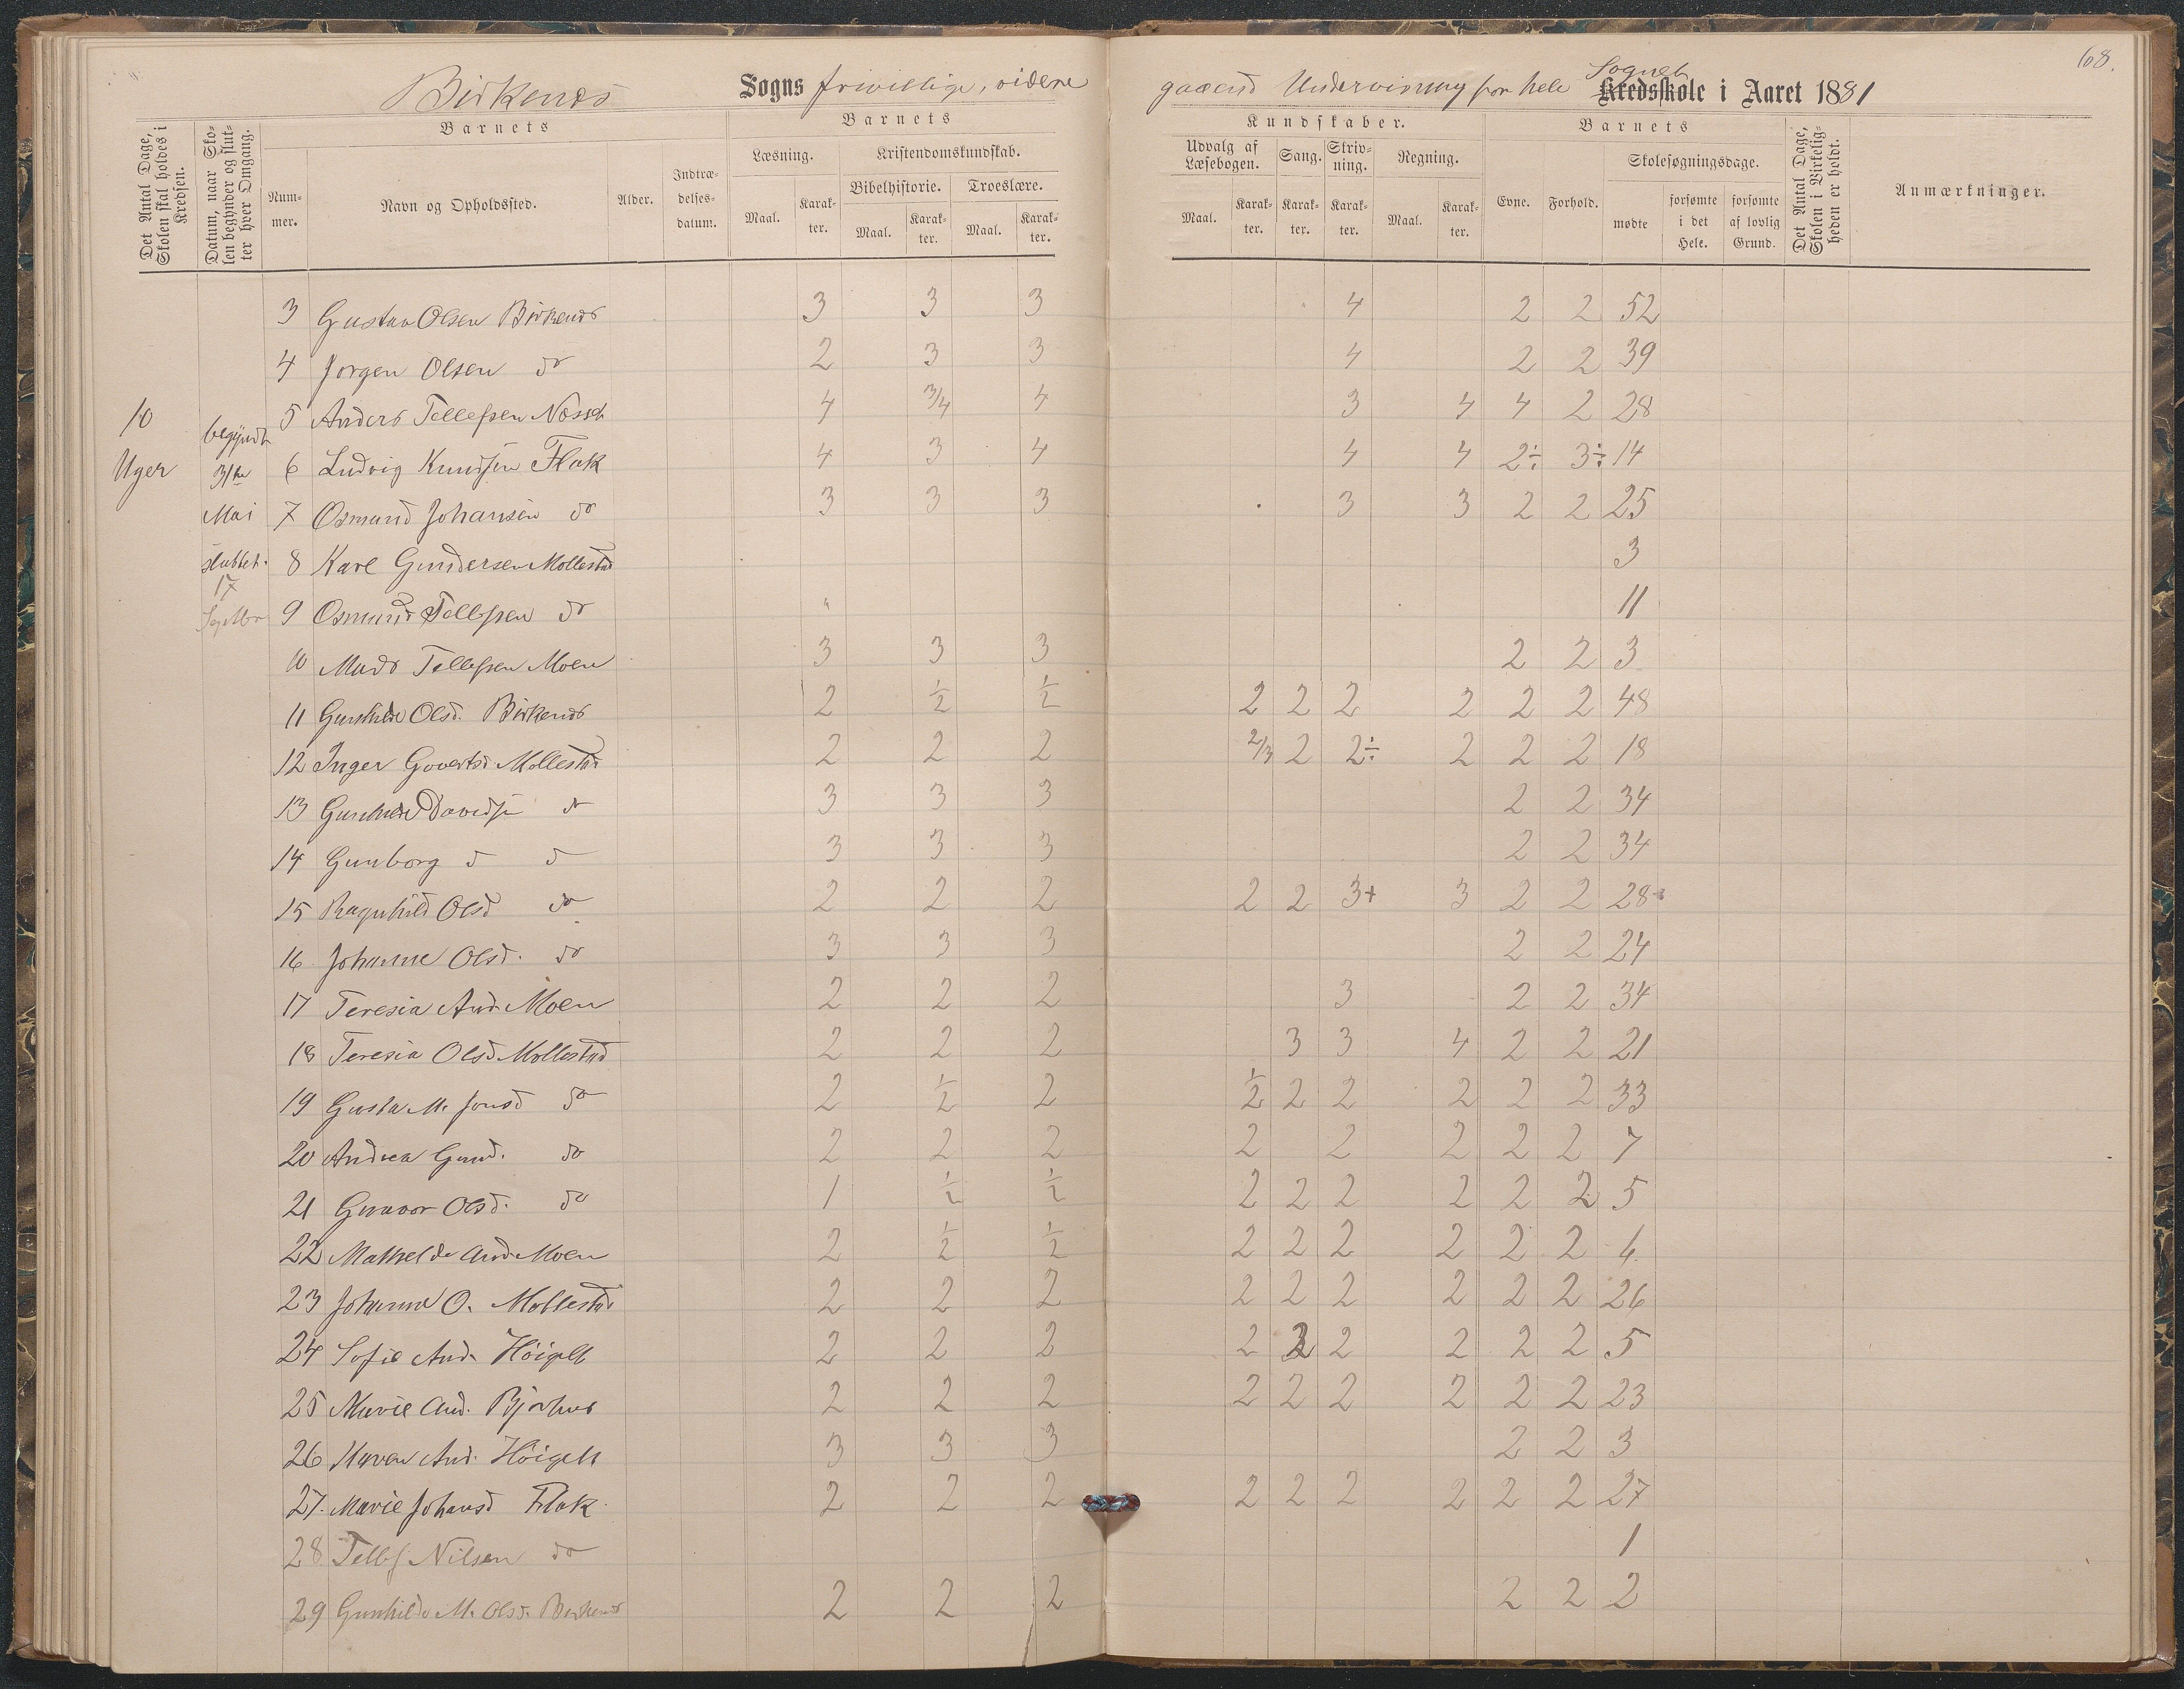 68.
Birkenæs Sogns frivillige, videre gaaend Undervisning for hele Sognet Kredsskole i Aaret 1881
Det Antal Dage, Skolen skal holdes i Kredsen.
Datum, naar Skolen begynder og slutter hver Omgang.
Barnets
Nummer.
Navn og Opholdssted.
Alder.
Indtrædelsesdatum.
Barnets
Læsning.
Maal.
Karakter.
Kristendomskundskab.
Bibelhistorie.
Maal.
Karakter.
Troeslære.
Maal.
Karakter.
Kundskaber.
Udvalg af Læsebogen.
Maal.
Karakter.
Sang.
Karakter.
Skrivning.
Karakter.
Regning.
Maal.
Karakter.
Barnets
Evne.
Forhold.
Skolesøgningsdage.
mødte
forsømte i det Hele.
forsømte af lovlig Grund.
Det Antal Dage, Skolen i Virkeligheden er holdt.
Anmærkninger.
10 Uger
begyndt 31te Mai sluttet. 17 Septbr
3 Gustav Olsen Birkenæs 3 3 3 4 2 2 52
4 Jørgen Olsen do 2 3 3 4 2 2 39
5 Anders Tellefsen Næsset 4 3/4 4 3 4 4 2 28
6 Ludvig Knudsen Flak 4 3 4 4 4 2÷ 3÷ 14
7 Osmund Johansen do 3 3 3 3 3 2 2 25
8 Karl Gundersen Mollestad 3
9 Osmund Tellefsen do 11
10 Mads Tellefsen Moen 3 3 3 2 2 3
11 Gunhilde Olsd. Birkenæs 2 1/2 1/2 2 2 2 2 2 2 48
12 Inger Govertsd Mollestad 2 2 2 2/3 2 2÷ 2 2 2 18
13 Gunhilde Davids do 3 3 3 2 2 34
14 Gunborg d d 3 3 3 2 2 34
15 Ragnhild Olsd do 2 2 2 2 2 3+ 3 2 2 28
16 Johanne Olsd. do 3 3 3 2 2 24
17 Teresia And. Moen 2 2 2 3 2 2 34
18 Teresia Olsd Mollestad 2 2 2 3 3 4 2 2 21
19 Gusta M. Jonsd do 2 1/2 2 1/2 2 2 2 2 2 33
20 Andrea Gund. do 2 2 2 2 2 2 2 2 7
21 Gunvor Olsd. do 1 1/2 1/2 2 2 2 2 2 2 5
22 Mathilde And. Moen 2 1/2 1/2 2 2 2 2 2 2 6
23 Johanne O. Mollestad 2 2 2 2 2 2 2 2 2 26
24 Sofie And. Høigilt 2 2 2 2 2 2 2 2 2 5
25 Marie And. Bjorhus 2 2 2 2 2 2 2 2 2 23
26 Maren And. Høigilt 3 3 3 2 2 3
27. Marie Johansd Flak. 2 2 2 2 2 2 2 2 2 27
28 Tellef Nilsen do 1
29 Gunhilde M. Olsd. Birkenæs 2 2 2 2 2 2